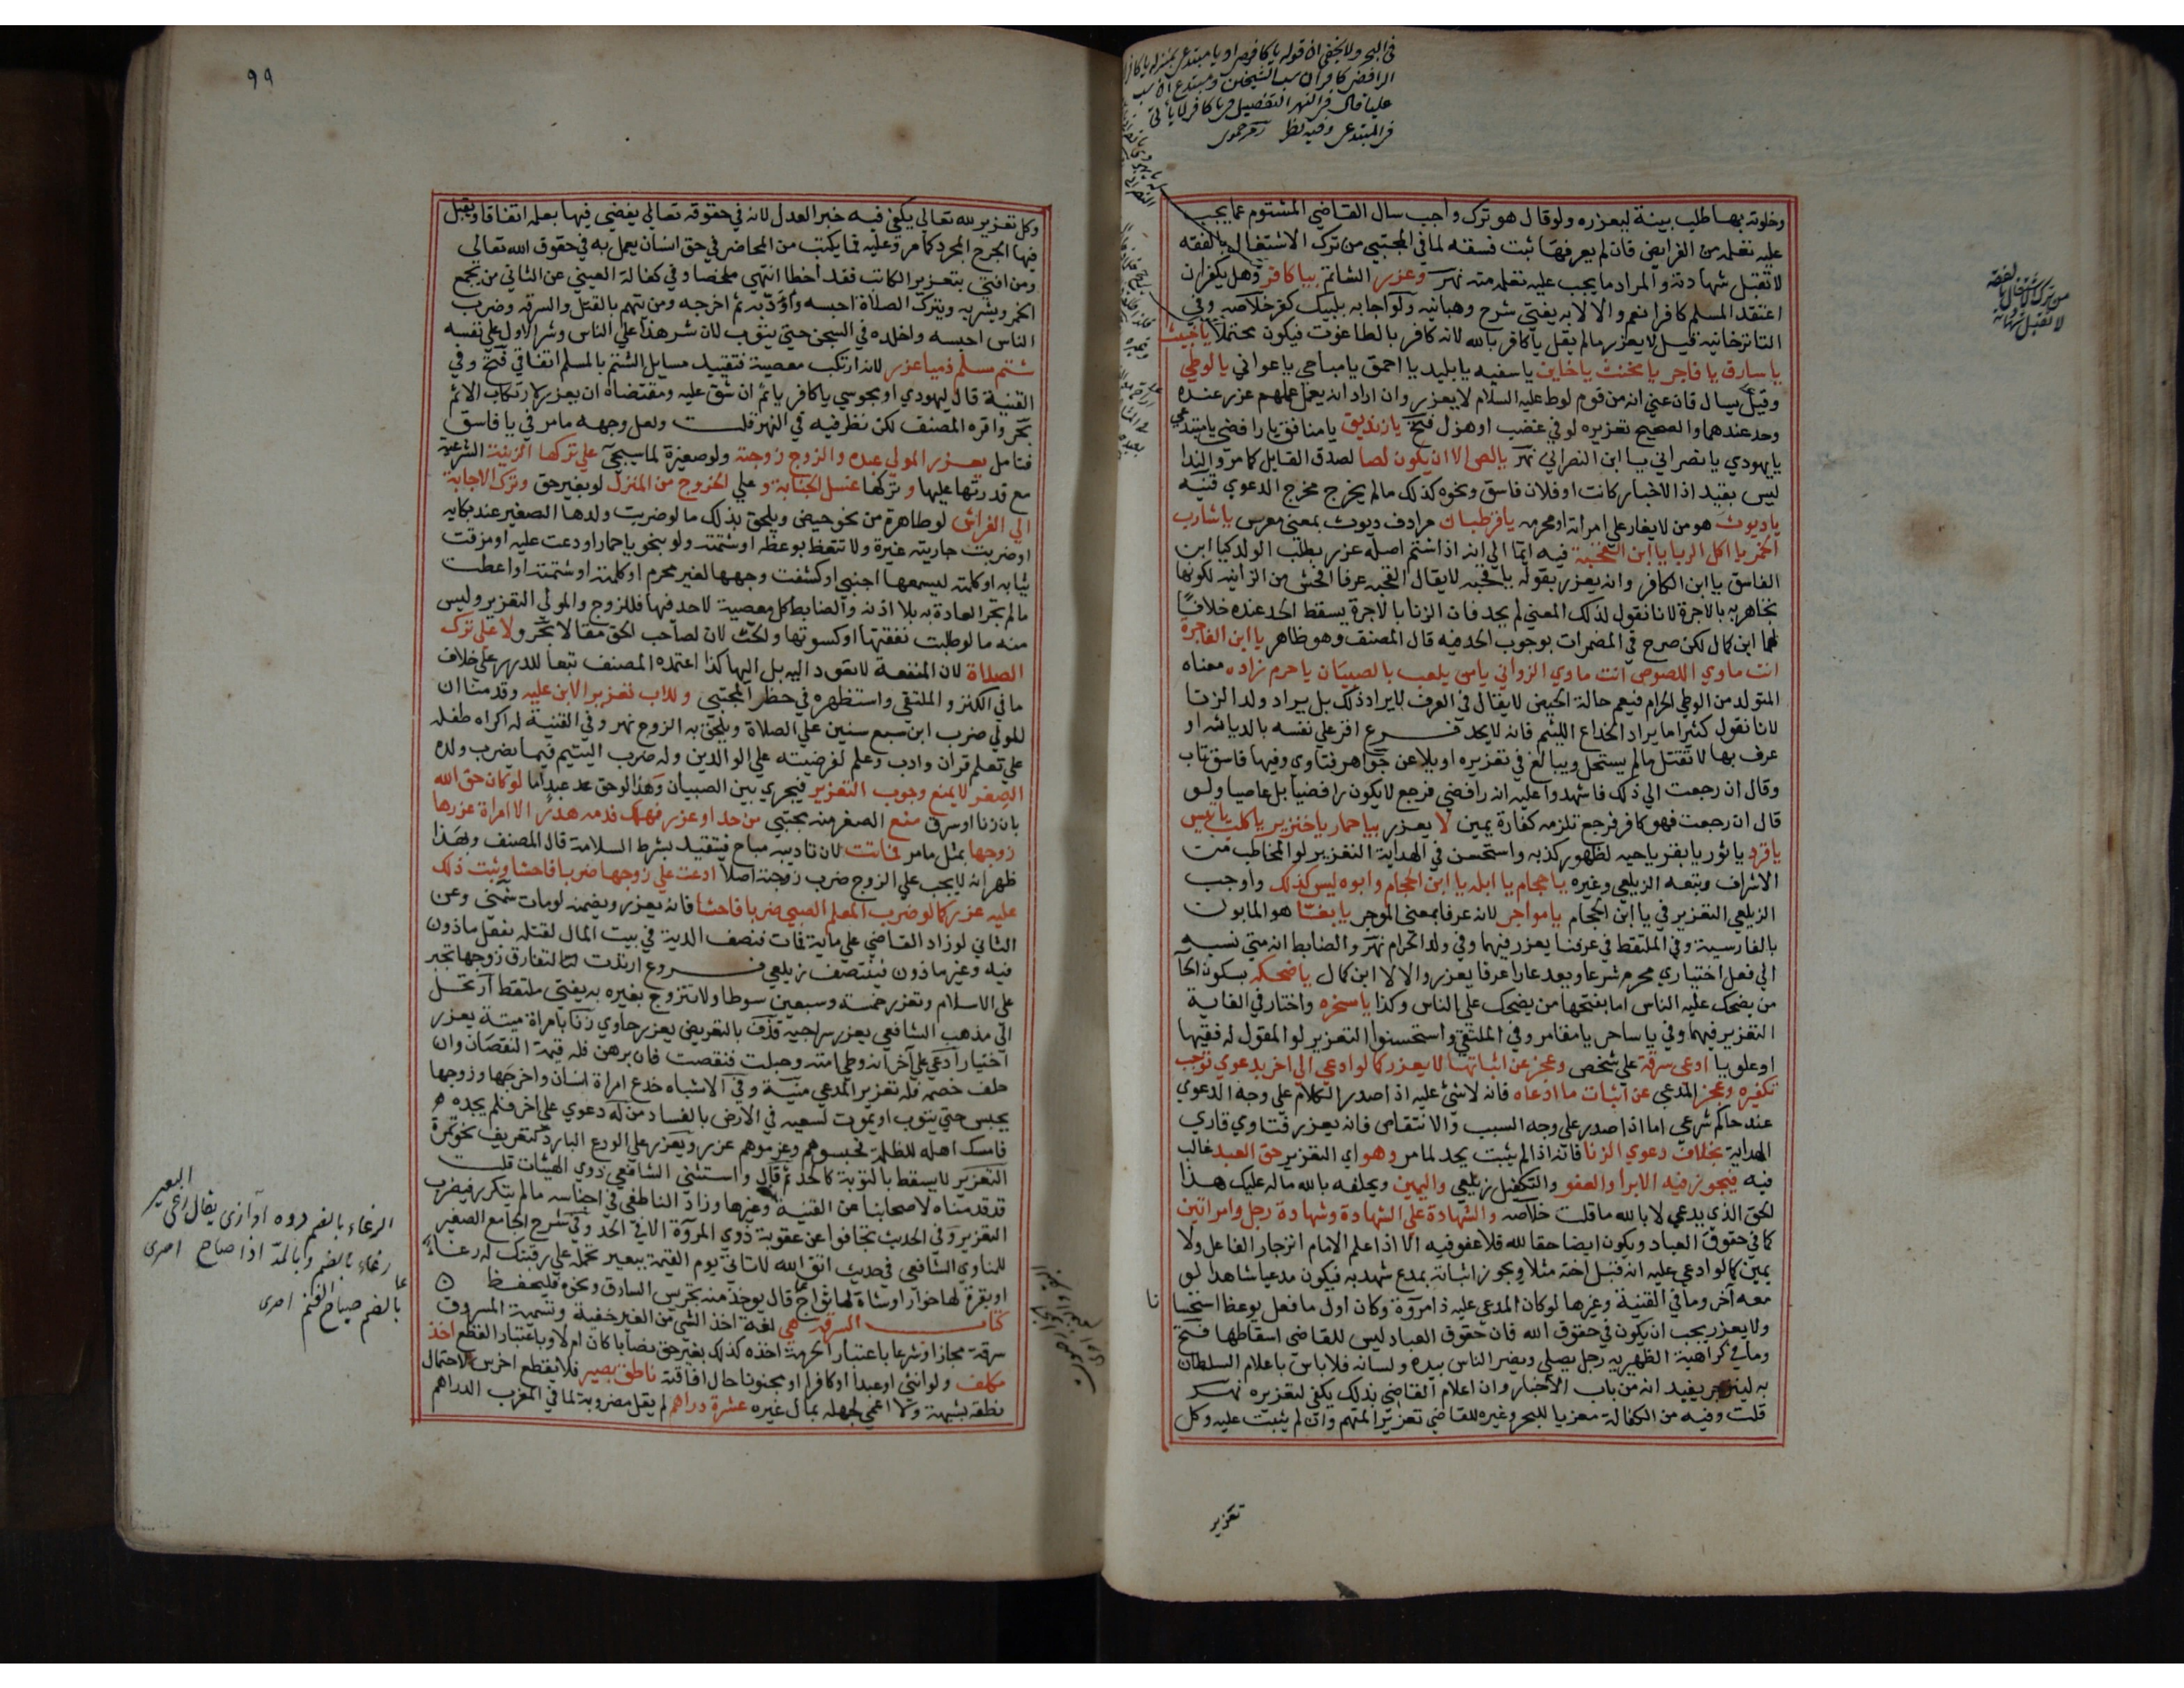 وخلوته بها طلب بينة ليعزره ولو قال هو ترك واجب سال القاضي المشتوم عما يجب
عليه تعلمه من الفرايض فان لم يعرفها ثبت فسقه لما في المجتبي من ترك الاشتغال بالفقه
لا تقبل شهادته والمراد ما يجب عليه تعلمه منه نهر وعزر الشاتم بيا كافر وهل يكفر ان
اعتقد المسلم كافرا نعم والا لا به يفتي شرح وهبانيه ولو اجابه بلبيك كفر خلاصه وفي
التاترخانيه قيل لا يعزر ما لم يقل يا كافر بالله لانه كافر بالطاغوت فيكون محتملا يا خبيث
يا سارق يا فاجر يا مخنث يا خاين يا سفيه يا بليد يا احمق يا مباحي يا عواني يا لوطي
وقيل يسال فان عني انه من قوم لوط عليه السلام لا يعزر وان اراد انه يعمل عملهم عزر عنده
وحد عندهما والصحيح تعزيره لو في غضب او هزل فتح يا زنديق يا منافق يا رافضي يا مبتدعي
يا يهودي يا نصراني يا ابن النصراني نهر يا لص الا ان يكون لصا لصدق القايل كما مر والندا
ليس بقيد اذ الاخبار كانت او فلان فاسق ونحوه كذلك ما لم يخرج مخرج الدعوي قنيه
يا ديوث هو من لا يغار علي امراته او محرمه يا قرطبان مرادف ديوث بمعني معرس يا شارب
الخمر يا اكل الربا يا ابن القحبة فيه ايما الي انه اذا شتم اصله عزر بطلب الولد كيا ابن
الفاسق يا ابن الكافر وانه يعزر بقوله يا قحبه لا يقال القحبه عرفا افحش من الزانيه لكونها
تجاهر به بالاجرة لانا نقول لذلك المعني لم يحد فان الزنا بالاجرة يسقط الحد عنده خلافا
لهما ابن كمال لكن صرح في المضمرات بوجوب الحد فيه قال المصنف وهو ظاهر يا ابن الفاجرة
انت ماوي اللصوص انت ماوي الزواني يا من يلعب بالصبيان يا حرم زاده معناه
المتولد من الوطي الحرام فيعم حالة الحيض لا يقال في العرف لا يراد ذلك بل يراد ولد الزنا
لانا نقول كثيرا ما يراد الخداع اللئيم فانه لا يحد فرع اقر علي نفسه بالدياثه او
عرف بها لا تقتل ما لم يستحل ويبالغ في تعزيره او يلاعن جواهر فتاوي وفيها فاسق تاب
وقال ان رجعت الي ذلك فاشهدوا عليه انه رافضي فرجع لا يكون رافضيا بل عاصيا ولو
قال ان رجعت فهو كافر فرجع تلزمه كفارة يمين لا يعزر بيا حمار يا خنزير يا كلب يا تيس
يا قرد يا ثور يا بقر يا حيه لظهور كذبه واستحسن في الهداية التعزير لو المخاطب من
الاشراف وتبعه الزيلعي وغيره يا حجام يا ابله يا ابن الحجام وابوه ليس كذلك واوجب
الزيلعي التعزير في يا ابن الحجام يا مواجر لانه عرفا بمعني الموجر يا بغا هو المابون
بالفارسية وفي الملتقط في عرفنا يعزر فيهما وفي ولد الحرام نهر والضابط انه متي نسبه
الي فعل اختياري محرم شرعا ويعد عارا عرفا يعزر والا لا ابن كمال يا ضحكه بسكون الحا
من يضحك عليه الناس اما بفتحها من يضحك علي الناس وكذا يا سخره واختار في الغاية
التعزير فيهما وفي يا ساحر يا مقامر وفي الملتقي واستحسنوا التعزير لو المقول له فقيها
او علويا ادعي سرقة علي شخص وعجز عن اثباتها لا يعزر كما لو ادعي الي اخر بدعوي توجب
تكفيره وعجز المدعي عن اثبات ما ادعاه فانه لا شئ عليه اذا صدر الكلام علي وجه الدعوي
عند حاكم شرعي اما اذا صدر علي وجه السبب والانتقاص فانه يعزر فتاوي قاري
الهداية بخلاف دعوي الزنا فانه اذا لم يثبت يحد لما مر وهو اي التعزير حق العبد غالب
فيه فيجوز فيه الابرا والعفو والتكفيل زيلعي واليمين ويحلفه بالله ماله عليك هذا
الحق الذي يدعي لا بالله ما قلت خلاصه والشهادة علي الشهادة وشهادة رجل وامراتين
كما في حقوق العباد ويكون ايضا حقا لله فلا عفو فيه الا اذا علم الامام انزجار الفاعل ولا
يمين كما لو ادعي عليه انه قبل اخته مثلا ويجوز اثباته بمدع شهد به فيكون مدعيا شاهدا لو
معه آخر وما في القنية وغيرها لو كان المدعي عليه ذا مروة وكان اول ما فعل يوعظ استحسا
نا
ولا يعزر يجب ان يكون في حقوق الله فان حقوق العباد ليس للقاضي اسقاطها فتح
وما في كراهية الظهيريه رجل يصلي ويضر الناس بيده ولسانه فلا باس باعلام السلطان
به لينزجر يفيد انه من باب الاخبار وان اعلام القاضي بذلك يكفي لتعزيره نهر
قلت وفيه من الكفالة معزيا للبحر وغيره للقاضي تعزير المتهم وان لم يثبت عليه وكل
تعزير
في البحر ولا يخفي ان قوله يا كافر
الرافضي كافر ان سب الشيخين ومبتدع ان سب
عليا قال في النهر التفصيل في يا كافر لا ياتي
في المبتدع وفيه نظر حموي
من ترك الاشتغال بالفقه
لا تقبل شهادته
٩٩
وكل تعزير لله تعالي يكفي فيه خبر العدل لانه في حقوقه تعالي يقضي فيها بعلمه اتفاقا ويقبل
فيها الجرح المجرد كما مر وعليه فما يكتب من المحاضر في حق انسان يعمل به في حقوق الله تعالي
ومن افتي بتعزير الكاتب فقد اخطا انتهي ملخصا وفي كفالة العيني عن الثاني من يجمع
الخمر ويشربه ويترك الصلاة احبسه واؤدبه ثم اخرجه ومن يتهم بالقتل والسرقه وضرب
الناس احبسه واخلده في السجن حتي يتوب لان شر هذا علي الناس وشر الاول علي نفسه
شتم مسلم ذميا عزر لانه ارتكب معصية فتقييد مسايل الشتم بالمسلم اتفاقي فتح وفي
القنية قال ليهودي او مجوسي يا كافر ياثم ان شق عليه ومقتضاه ان يعزر لارتكاب الاثم
بحر واقره المصنف لكن نظر فيه في النهر قلت ولعل وجهه ما مر في يا فاسق
فتامل يعزر المولي عبده والزوج زوجته ولو صغيرة لما سيجئ علي تركها الزينة الشرعية
مع قدرتها عليها وتركها غسل الجنابة و علي الخروج من المنزل لو بغير حق وترك الاجابة
الي الفراش لو طاهرة من نحو حيض ويلحق بذلك ما لو ضربت ولدها الصغير عند بكايه
او ضربت جاريته غيرة ولا تتعظ بوعظه او شتمته ولو بنحو يا حمار او دعت عليه او مزقت
ثيابه او كلمته ليسمعها اجنبي او كشفت وجهها لغير محرم او كلمته او شتمته او اعطت
ما لم تجر العادة به بلا اذنه والضابط كل معصية لا حد فيها فللزوج والمولي التعزير وليس
منه ما لو طلبت نفقتها او كسوتها والحت لان لصاحب الحق مقالا بحر ولا علي ترك
الصلاة لان المنفعة لا تعود اليه بل اليها كذا اعتمده المصنف تبعا للدرر علي خلاف
ما في الكنز والملتقي واستظهره في حظر المجتبي وللاب تعزير الابن عليه وقدمنا ان
للولي ضرب ابن سبع سنين علي الصلاة ويلحق به الزوج نهر وفي القنية له اكراه طفله
علي تعلم قران وادب وعلم لفرضيته علي الوالدين وله ضرب اليتيم فيما يضرب ولده
الصغر لا يمنع وجوب التعزير فيجري بين الصبيان وهذا لو حق عبد اما لو كان حق الله
بان زنا او سرق منع الصغر منه مجتبي من حد او عزر فهلك فدمه هدر الا امراة عزرها
زوجها بمثل ما مر فماتت لان تاديبه مباح فيتقيد بشرط السلامة قال المصنف وبهذا
ظهر انه لا يجب علي الزوج ضرب زوجته اصلا ادعت علي زوجها ضربا فاحشا وثبت ذلك
عليه عزر كما لو ضرب المعلم الصبي ضربا فاحشا فانه يعزر ويضمنه لو مات شمني وعن
الثاني لو زاد القاضي علي ماية فمات فنصف الدية في بيت المال لقتله بفعل ماذون
فيه وغير ماذون فيتنصف زيلعي فروع ارتدت لتفارق زوجها تجبر
علي الاسلام وتعزر خمسة وسبعين سوطا ولا تتزوج بغيره به يفتي ملتقط ارتحل
الي مذهب الشافعي يعزر سراجيه قذف بالتعريض يعزر حاوي زنا بامراة ميتة يعزر
اختيار ادعي علي آخر انه وطي امته وحبلت فنقصت فان برهن فله قيمة النقصان وان
حلف خصمه فله تعزير المدعي منية وفي الاشباه خدع امراة انسان واخرجها وزوجها
يحبس حتي يتوب او يموت لسعيه في الارض بالفساد من له دعوي علي اخر فلم يجده
فامسك اهله للظلمة فحبسوهم وغرموهم عزر ويعزر علي الورع البارد كتعريف نحو تمرة
التعزير لا يسقط بالتوبة كالحد ثم قال واستثني الشافعي ذوي الهيئات قلت
قد قدمناه لاصحابنا عن القنية وغيرها وزاد الناطفي في اجناسه ما لم يتكرر فيضرب
التعزير وفي الحديث تجافوا عن عقوبة ذوي المروة الا في الحد وفي شرح الجامع الصغير
للمناوي الشافعي في حديث اتق الله لا تاتي يوم القيمة ببعير تحمله علي رقبتك له رغاء
او بقرة لها خوار او شاة لها ثواج قال يوخذ منه تجريس السارق ونحوه فليحفظ
كتاب السرقه هي لغة اخذ الشئ من الغير خفية وتسمية المسروق
سرقة مجازا وشرعا باعتبار الحرمة اخذه كذلك بغير حق نصابا كان ام لا وباعتبار القطع اخذ
مكلف ولو انثي او عبدا او كافرا او مجنونا حال افاقته ناطق بصير فلا يقطع اخرس لاحتمال
نطقه بشبهة ولا اعمي لجهله بمال غيره عشرة دراهم لم يقل مضروبة لما في المغرب الدراهم
الرغاء بالضم دوه آوازى يقال رغى البعير
رغاء بالضم وبالمد اذا صاح اخرى
بالضم صياح الغنم اخرى